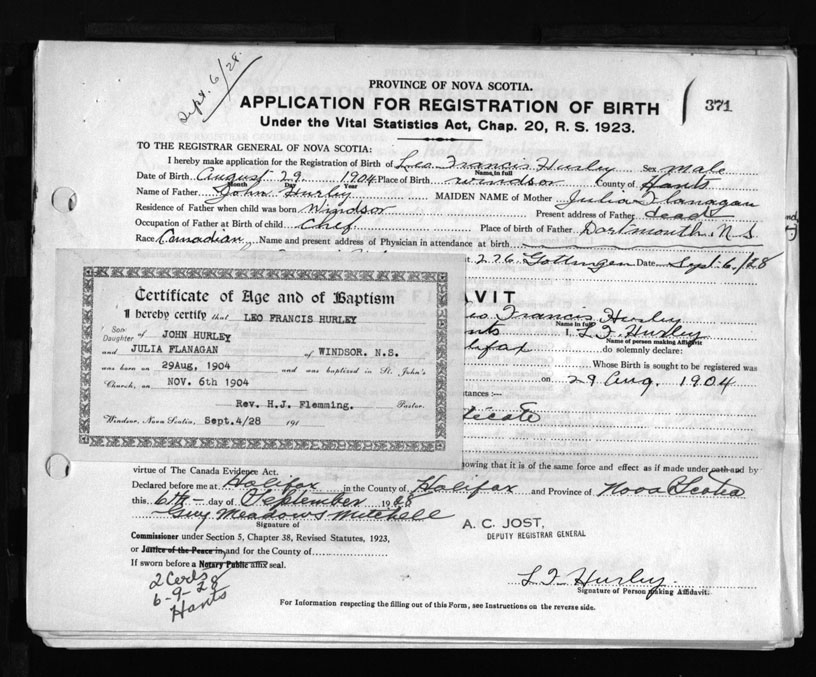 Sept. 6/28.
PROVINCE OF NOVA SCOTIA.
APPLICATION FOR REGISTRATION OF BIRTH
371
Under the Vital Statistics Act, Chap. 20, R. S. 1923.
TO THE REGISTRAR GENERAL OF NOVA SCOTIA:
I hereby make application for the Registration of Birth of Leo Francis Hurley Sex male
Name in full
Date of Birth August 29 1904 Place of Birth windsor County of Hants
Month Day Year
Name of Father John Hurley MAIDEN NAME of Mother Julia Flanagan
Residence of Father when child was born Windsor Present address of Father dead
Occupation of Father at Birth of child Chef. Place of birth of Father Dartmouth N.S
Race Canadian Name and present address of Physician in attendance at birth
at 276 Gottingen Date Sept. 6./28
Certificate of Age and of Baptism
I hereby certify that LEO FRANCIS HURLEY
Son
Daughter of JOHN HURLEY
and JULIA FLANAGAN of WINDSOR. N.S.
was born on 29Aug, 1904 and was baptized in St. John's
Church, on NOV. 6th 1904
Rev. H.J. Flemming. Pastor.
Windsor, Nova Scotia, Sept.4/28 191
AVIT
Leo Francis Hurley
Name in full
I, L F Hurley
Name of person making Affidavit
alifax do solemnly declare:
Whose Birth is sought to be registered was
on 29 Aug. 1904
stances :—
ificate
nowing that it is of the same force and effect as if made under oath and by
virtue of The Canada Evidence Act.
Declared before me at Halifax in the County of Halifax and Province of Nova Scotia
this 6th day of September 1928
Guy Meadows Mitchell
Signature of
A. C. JOST,
DEPUTY REGISTRAR GENERAL
Commissioner under Section 5, Chapter 38, Revised Statutes, 1923,
or Justice of the Peace in, and for the County of
If sworn before a Notary Public affix seal.
2 Certs
6-9-28
Hants
L F Hurley.
Signature of Person making Affidavit.
For Information respecting the filling out of this Form, see Instructions on the reverse side.